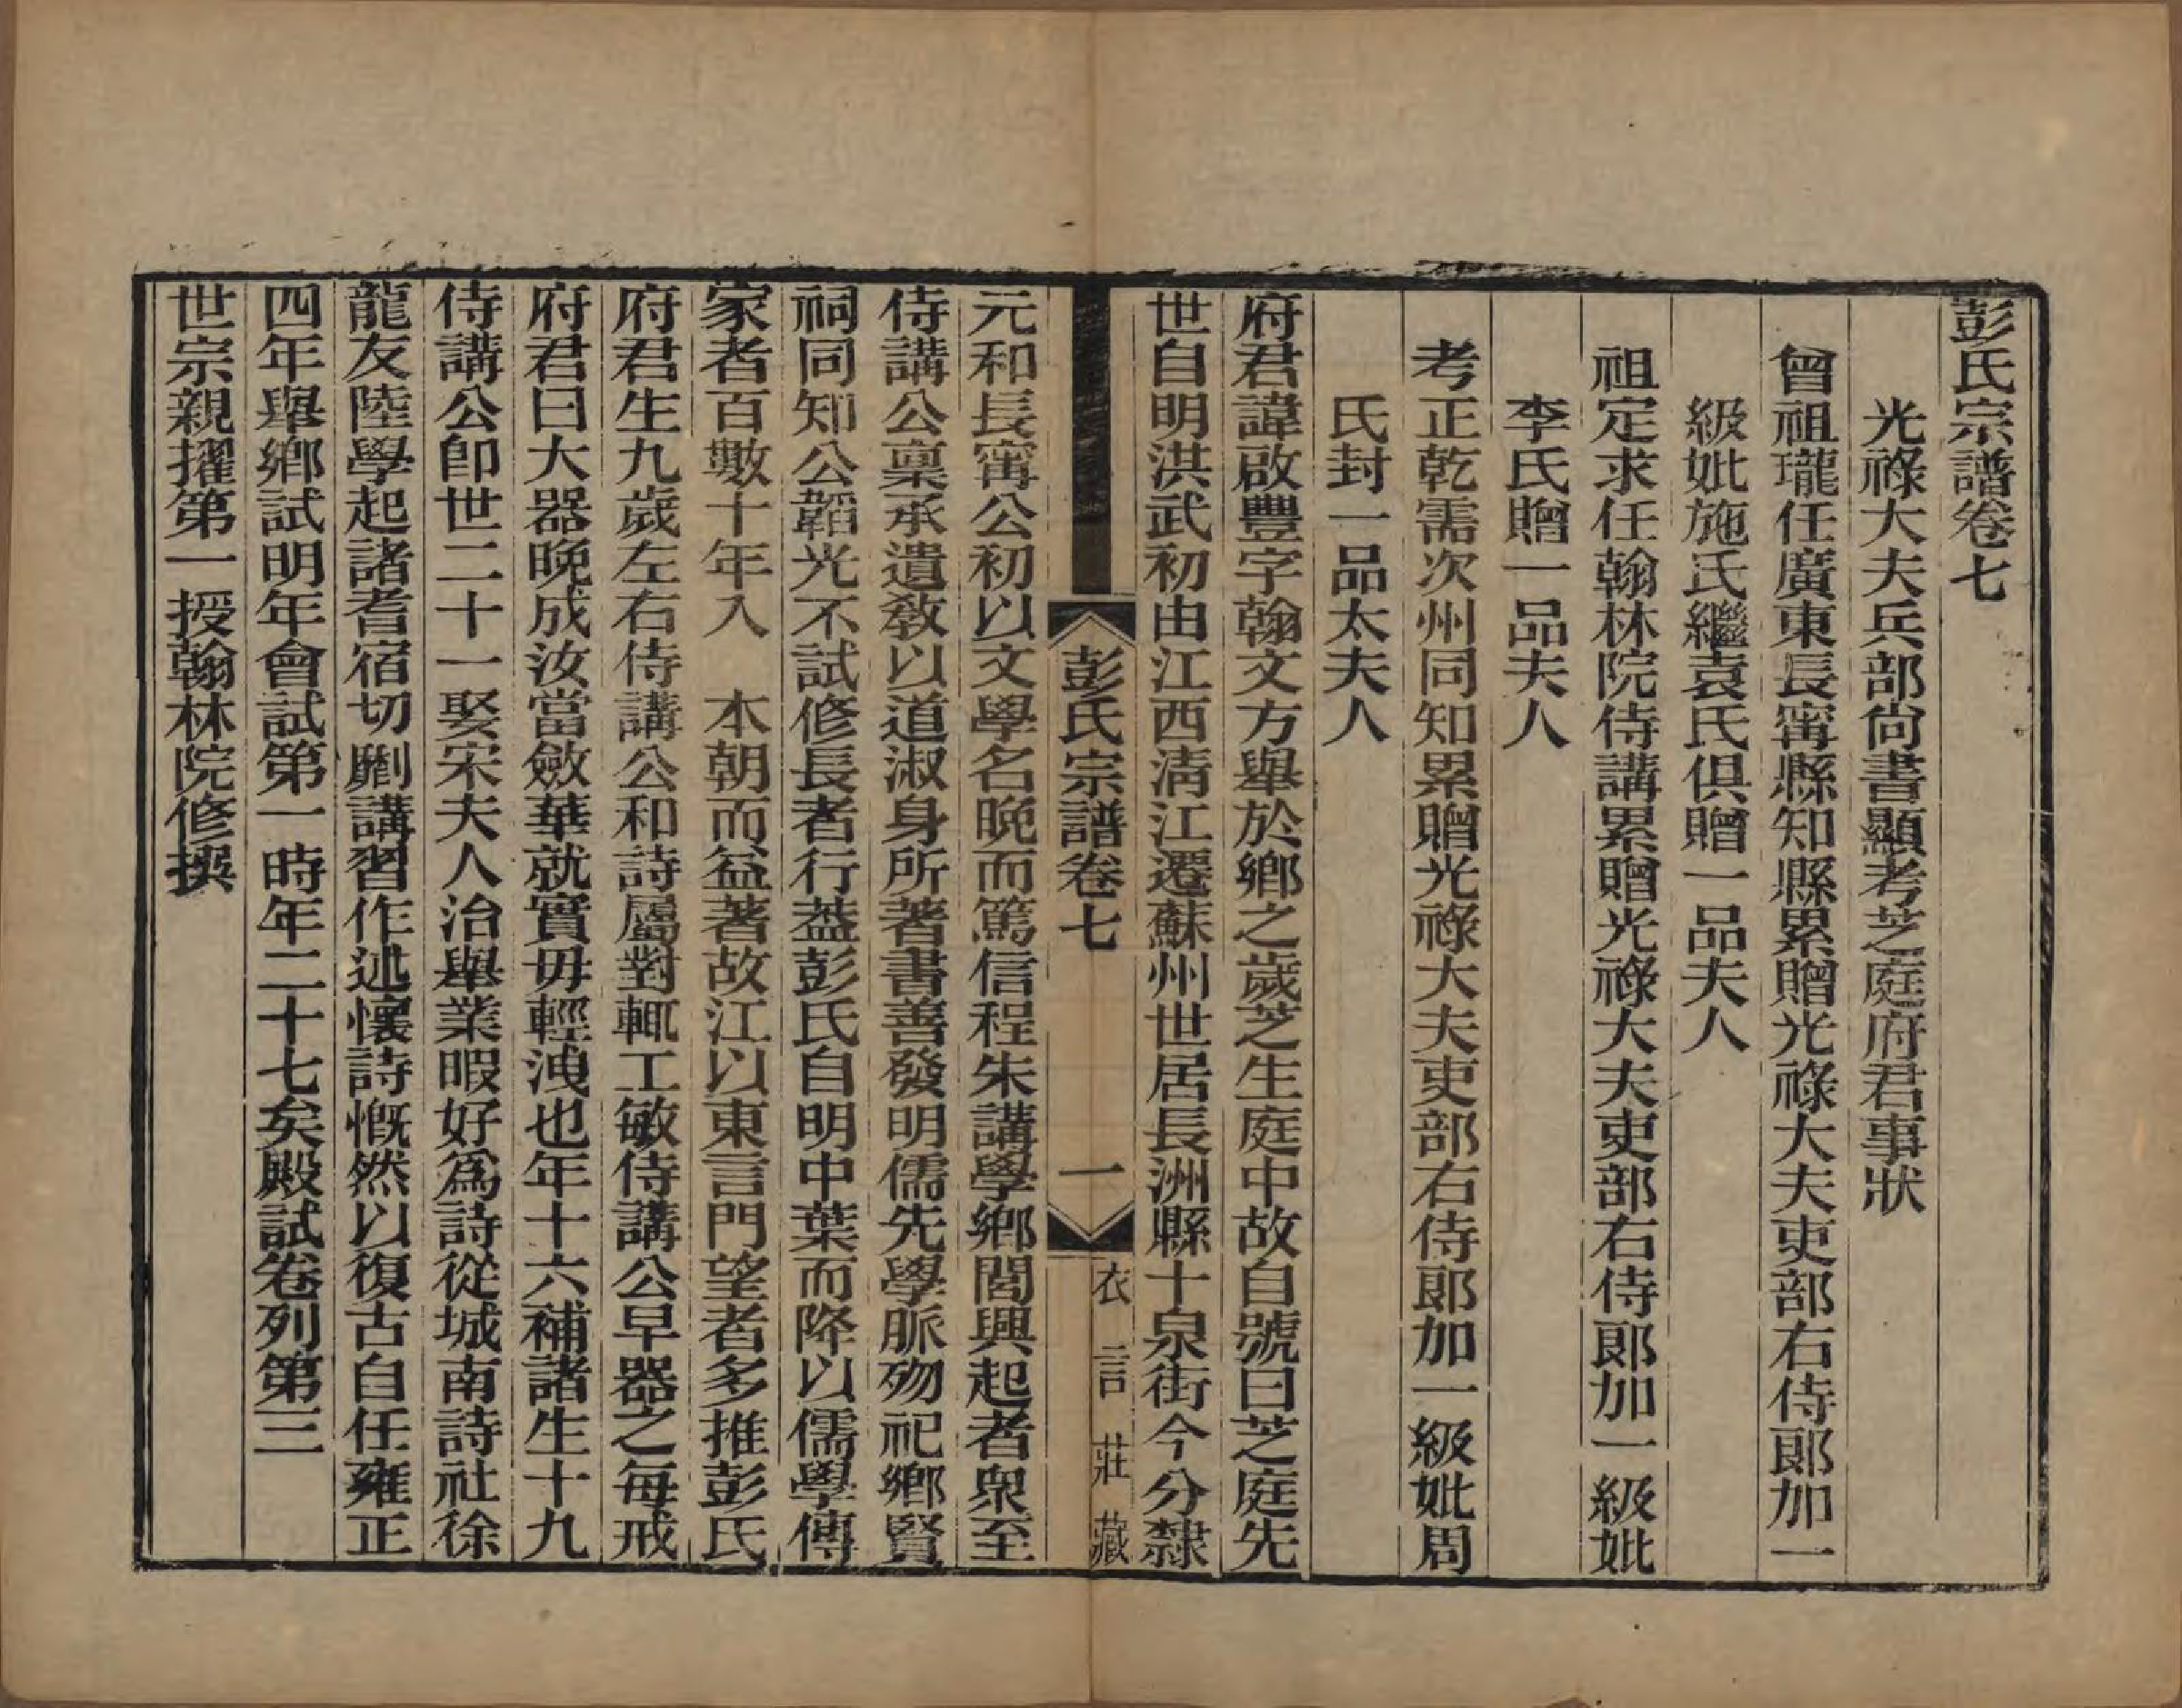 彭氏宗譜卷七
光祿大夫兵部尚書顯考芝庭府君事狀
曾祖瓏任廣東長甯縣知縣累贈光祿大夫吏部右侍郎加一
級妣施氏繼袁氏俱贈一品夫人
祖定求任翰林院侍講累贈光祿大夫吏部右侍郎加一級妣
李氏贈一品夫人
考正乾需次州同知累贈光祿大夫吏部右侍郎加一級妣周
氏封一品太夫人
府君諱啟豐字翰文方舉於鄉之歲芝生庭中故自號曰芝庭先
世自明洪武初由江西清江遷蘇州世居長洲縣十泉街今分隸
彭氏宗譜卷七
一
衣言莊藏
元和長甯公初以文學名晚而篤信程朱講學鄉閭興起者眾至
侍講公稟承遺敎以道淑身所著書善發明儒先學脈歿祀鄉賢
祠同知公韜光不試修長者行葢彭氏自明中葉而降以儒學傳
家者百數十年入 本朝而益著故江以東言門望者多推彭氏
府君生九歲左右侍講公和詩屬對輒工敏侍講公早器之每戒
府君曰大器晚成汝當斂華就實毋輕洩也年十六補諸生十九
侍講公卽世二十一娶宋夫人治舉業暇好爲詩從城南詩社徐
龍友陸學起諸耆宿切劘講習作述懷詩慨然以復古自任雍正
四年舉鄉試明年會試第一時年二十七矣殿試卷列第三
世宗親擢第一授翰林院修撰